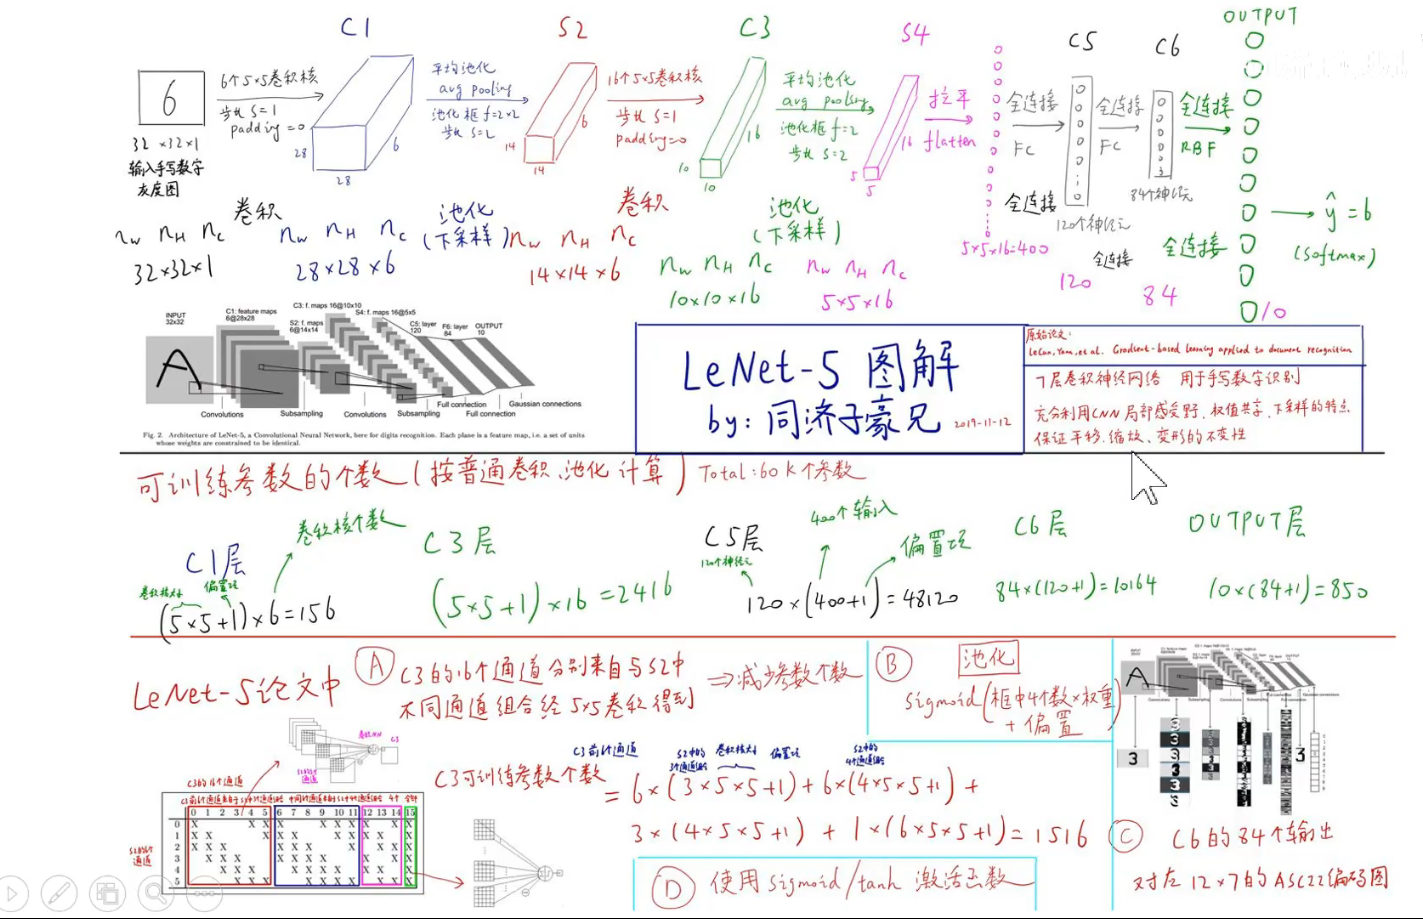 C1
S2
C3
S4
C5
C6
OUTPUT
6
6个5×5卷积核
步长 S=1
padding=0
28
28
6
平均池化
avg pooling
池化框 f=2×2
步长 S=2
14
14
6
16个5×5卷积核
步长 S=1
padding=0
10
10
16
平均池化
avg pooling
池化框 f=2
步长 S=2
5
5
16
拉平
flatten
全连接
FC
全连接
FC
全连接
RBF
32×32×1
输入手写数字
灰度图
全连接
120个神经元
84个神经元
ŷ=6
(softmax)
卷积
池化
(下采样)
卷积
池化
(下采样)
5×5×16=400
全连接
全连接
nW nH nC
32×32×1
nW nH nC
28×28×6
nW nH nC
14×14×6
nW nH nC
10×10×16
nW nH nC
5×5×16
120
84
10
INPUT
32x32
C1: feature maps
6@28x28
S2: f. maps
6@14x14
C3: f. maps 16@10x10
S4: f. maps 16@5x5
C5: layer
120
F6: layer
84
OUTPUT
10
Convolutions
Subsampling
Convolutions
Subsampling
Full connection
Full connection
Gaussian connections
Fig. 2. Architecture of LeNet-5, a Convolutional Neural Network, here for digits recognition. Each plane is a feature map, i.e. a set of units
whose weights are constrained to be identical.
LeNet-5 图解
by: 同济子豪兄
2019-11-12
原始论文:
LeCun, Yann, et al. Gradient-based learning applied to document recognition
7层卷积神经网络 用于手写数字识别
充分利用CNN局部感受野、权值共享、下采样的特点
保证平移、缩放、变形的不变性
可训练参数的个数(按普通卷积、池化计算) Total:60K个参数
C1层
卷积核个数
卷积核大小
偏置项
(5×5+1)×6=156
C3层
(5×5+1)×16=2416
C5层
120个神经元
400个输入
偏置项
120×(400+1)=48120
C6层
84×(120+1)=10164
OUTPUT层
10×(84+1)=850
LeNet-5论文中
A
C3的16个通道分别来自与S2中
不同通道组合经5×5卷积得到
⇒减少参数个数
B
池化
sigmoid(框中4个数×权重
+偏置)
C3
C3的16个通道
S2的6个
通道
0 1 2 3 4 5 6 7 8 9 10 11 12 13 14 15
0
1
2
3
4
5
C3前6个通道
卷积核大小
偏置项
C3可训练参数个数
=6×(3×5×5+1)+6×(4×5×5+1)+
3×(4×5×5+1)+1×(6×5×5+1)=1516
C
C6的84个输出
对应12×7的ASCII编码图
D
使用sigmoid/tanh 激活函数
3
3